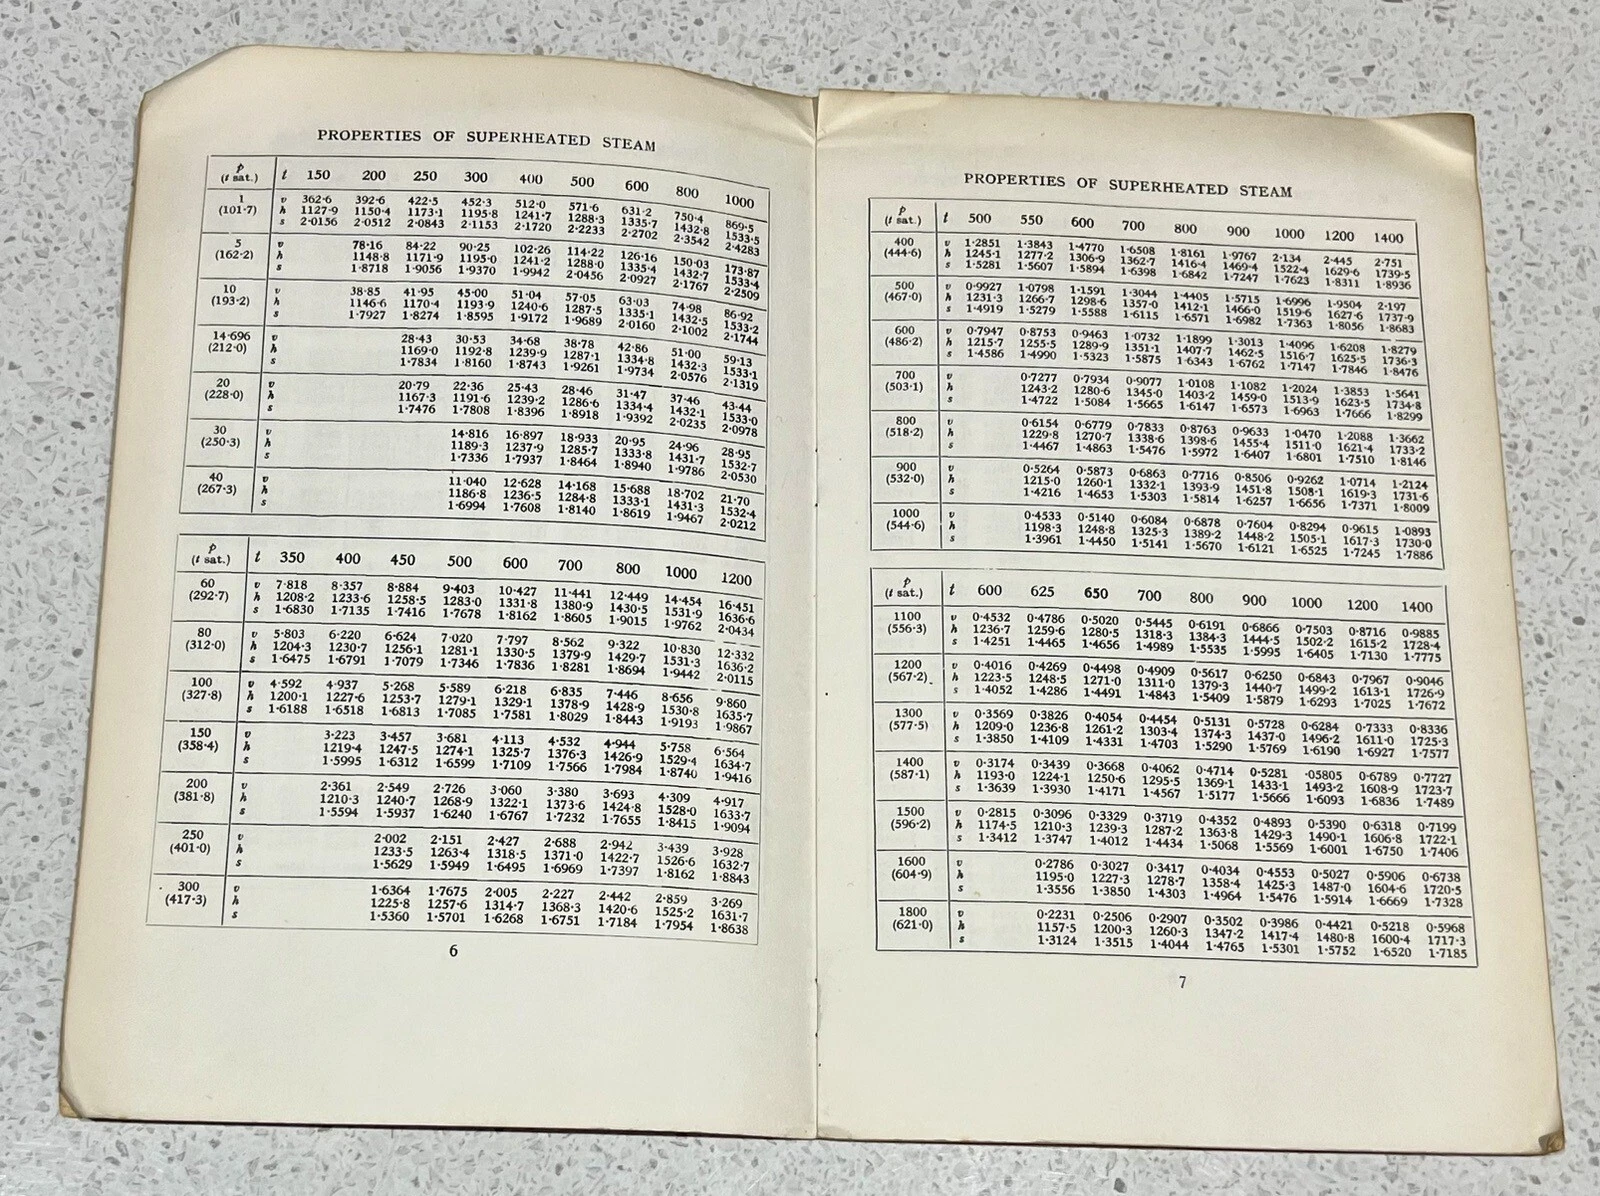 PROPERTIES OF SUPERHEATED STEAM
p
(t sat.) t 150 200 250 300 400 500 600 800 1000
1 v 362·6 392·6 422·5 452·3 512·0 571·6 631·2 750·4 869·5
(101·7) h 1127·9 1150·4 1173·1 1195·8 1241·7 1288·3 1335·7 1432·8 1533·5
s 2·0156 2·0512 2·0843 2·1153 2·1720 2·2233 2·2702 2·3542 2·4283
5 v 78·16 84·22 90·25 102·26 114·22 126·16 150·03 173·87
(162·2) h 1148·8 1171·9 1195·0 1241·2 1288·0 1335·4 1432·7 1533·4
s 1·8718 1·9056 1·9370 1·9942 2·0456 2·0927 2·1767 2·2509
10 v 38·85 41·95 45·00 51·04 57·05 63·03 74·98 86·92
(193·2) h 1146·6 1170·4 1193·9 1240·6 1287·5 1335·1 1432·5 1533·2
s 1·7927 1·8274 1·8595 1·9172 1·9689 2·0160 2·1002 2·1744
14·696 v 28·43 30·53 34·68 38·78 42·86 51·00 59·13
(212·0) h 1169·0 1192·8 1239·9 1287·1 1334·8 1432·3 1533·1
s 1·7834 1·8160 1·8743 1·9261 1·9734 2·0576 2·1319
20 v 20·79 22·36 25·43 28·46 31·47 37·46 43·44
(228·0) h 1167·3 1191·6 1239·2 1286·6 1334·4 1432·1 1533·0
s 1·7476 1·7808 1·8396 1·8918 1·9392 2·0235 2·0978
30 v 14·816 16·897 18·933 20·95 24·96 28·95
(250·3) h 1189·3 1237·9 1285·7 1333·8 1431·7 1532·7
s 1·7336 1·7937 1·8464 1·8940 1·9786 2·0530
40 v 11·040 12·628 14·168 15·688 18·702 21·70
(267·3) h 1186·8 1236·5 1284·8 1333·1 1431·3 1532·4
s 1·6994 1·7608 1·8140 1·8619 1·9467 2·0212
p
(t sat.) t 350 400 450 500 600 700 800 1000 1200
60 v 7·818 8·357 8·884 9·403 10·427 11·441 12·449 14·454 16·451
(292·7) h 1208·2 1233·6 1258·5 1283·0 1331·8 1380·9 1430·5 1531·9 1636·6
s 1·6830 1·7135 1·7416 1·7678 1·8162 1·8605 1·9015 1·9762 2·0434
80 v 5·803 6·220 6·624 7·020 7·797 8·562 9·322 10·830 12·332
(312·0) h 1204·3 1230·7 1256·1 1281·1 1330·5 1379·9 1429·7 1531·3 1636·2
s 1·6475 1·6791 1·7079 1·7346 1·7836 1·8281 1·8694 1·9442 2·0115
100 v 4·592 4·937 5·268 5·589 6·218 6·835 7·446 8·656 9·860
(327·8) h 1200·1 1227·6 1253·7 1279·1 1329·1 1378·9 1428·9 1530·8 1635·7
s 1·6188 1·6518 1·6813 1·7085 1·7581 1·8029 1·8443 1·9193 1·9867
150 v 3·223 3·457 3·681 4·113 4·532 4·944 5·758 6·564
(358·4) h 1219·4 1247·5 1274·1 1325·7 1376·3 1426·9 1529·4 1634·7
s 1·5995 1·6312 1·6599 1·7109 1·7566 1·7984 1·8740 1·9416
200 v 2·361 2·549 2·726 3·060 3·380 3·693 4·309 4·917
(381·8) h 1210·3 1240·7 1268·9 1322·1 1373·6 1424·8 1528·0 1633·7
s 1·5594 1·5937 1·6240 1·6767 1·7232 1·7655 1·8415 1·9094
250 v 2·002 2·151 2·427 2·688 2·942 3·439 3·928
(401·0) h 1233·5 1263·4 1318·5 1371·0 1422·7 1526·6 1632·7
s 1·5629 1·5949 1·6495 1·6969 1·7397 1·8162 1·8843
300 v 1·6364 1·7675 2·005 2·227 2·442 2·859 3·269
(417·3) h 1225·8 1257·6 1314·7 1368·3 1420·6 1525·2 1631·7
s 1·5360 1·5701 1·6268 1·6751 1·7184 1·7954 1·8638
6
PROPERTIES OF SUPERHEATED STEAM
p
(t sat.) t 500 550 600 700 800 900 1000 1200 1400
400 v 1·2851 1·3843 1·4770 1·6508 1·8161 1·9767 2·134 2·445 2·751
(444·6) h 1245·1 1277·2 1306·9 1362·7 1416·4 1469·4 1522·4 1629·6 1739·5
s 1·5281 1·5607 1·5894 1·6398 1·6842 1·7247 1·7623 1·8311 1·8936
500 v 0·9927 1·0798 1·1591 1·3044 1·4405 1·5715 1·6996 1·9504 2·197
(467·0) h 1231·3 1266·7 1298·6 1357·0 1412·1 1466·0 1519·6 1627·6 1737·9
s 1·4919 1·5279 1·5588 1·6115 1·6571 1·6982 1·7363 1·8056 1·8683
600 v 0·7947 0·8753 0·9463 1·0732 1·1899 1·3013 1·4096 1·6208 1·8279
(486·2) h 1215·7 1255·5 1289·9 1351·1 1407·7 1462·5 1516·7 1625·5 1736·3
s 1·4586 1·4990 1·5323 1·5875 1·6343 1·6762 1·7147 1·7846 1·8476
700 v 0·7277 0·7934 0·9077 1·0108 1·1082 1·2024 1·3853 1·5641
(503·1) h 1243·2 1280·6 1345·0 1403·2 1459·0 1513·9 1623·5 1734·8
s 1·4722 1·5084 1·5665 1·6147 1·6573 1·6963 1·7666 1·8299
800 v 0·6154 0·6779 0·7833 0·8763 0·9633 1·0470 1·2088 1·3662
(518·2) h 1229·8 1270·7 1338·6 1398·6 1455·4 1511·0 1621·4 1733·2
s 1·4467 1·4863 1·5476 1·5972 1·6407 1·6801 1·7510 1·8146
900 v 0·5264 0·5873 0·6863 0·7716 0·8506 0·9262 1·0714 1·2124
(532·0) h 1215·0 1260·1 1332·1 1393·9 1451·8 1508·1 1619·3 1731·6
s 1·4216 1·4653 1·5303 1·5814 1·6257 1·6656 1·7371 1·8009
1000 v 0·4533 0·5140 0·6084 0·6878 0·7604 0·8294 0·9615 1·0893
(544·6) h 1198·3 1248·8 1325·3 1389·2 1448·2 1505·1 1617·3 1730·0
s 1·3961 1·4450 1·5141 1·5670 1·6121 1·6525 1·7245 1·7886
p
(t sat.) t 600 625 650 700 800 900 1000 1200 1400
1100 v 0·4532 0·4786 0·5020 0·5445 0·6191 0·6866 0·7503 0·8716 0·9885
(556·3) h 1236·7 1259·6 1280·5 1318·3 1384·3 1444·5 1502·2 1615·2 1728·4
s 1·4251 1·4465 1·4656 1·4989 1·5535 1·5995 1·6405 1·7130 1·7775
1200 v 0·4016 0·4269 0·4498 0·4909 0·5617 0·6250 0·6843 0·7967 0·9046
(567·2) h 1223·5 1248·5 1271·0 1311·0 1379·3 1440·7 1499·2 1613·1 1726·9
s 1·4052 1·4286 1·4491 1·4843 1·5409 1·5879 1·6293 1·7025 1·7672
1300 v 0·3569 0·3826 0·4054 0·4454 0·5131 0·5728 0·6284 0·7333 0·8336
(577·5) h 1209·0 1236·8 1261·2 1303·4 1374·3 1437·0 1496·2 1611·0 1725·3
s 1·3850 1·4109 1·4331 1·4703 1·5290 1·5769 1·6190 1·6927 1·7577
1400 v 0·3174 0·3439 0·3668 0·4062 0·4714 0·5281 ·05805 0·6789 0·7727
(587·1) h 1193·0 1224·1 1250·6 1295·5 1369·1 1433·1 1493·2 1608·9 1723·7
s 1·3639 1·3930 1·4171 1·4567 1·5177 1·5666 1·6093 1·6836 1·7489
1500 v 0·2815 0·3096 0·3329 0·3719 0·4352 0·4893 0·5390 0·6318 0·7199
(596·2) h 1174·5 1210·3 1239·3 1287·2 1363·8 1429·3 1490·1 1606·8 1722·1
s 1·3412 1·3747 1·4012 1·4434 1·5068 1·5569 1·6001 1·6750 1·7406
1600 v 0·2786 0·3027 0·3417 0·4034 0·4553 0·5027 0·5906 0·6738
(604·9) h 1195·0 1227·3 1278·7 1358·4 1425·3 1487·0 1604·6 1720·5
s 1·3556 1·3850 1·4303 1·4964 1·5476 1·5914 1·6669 1·7328
1800 v 0·2231 0·2506 0·2907 0·3502 0·3986 0·4421 0·5218 0·5968
(621·0) h 1157·5 1200·3 1260·3 1347·2 1417·4 1480·8 1600·4 1717·3
s 1·3124 1·3515 1·4044 1·4765 1·5301 1·5752 1·6520 1·7185
7